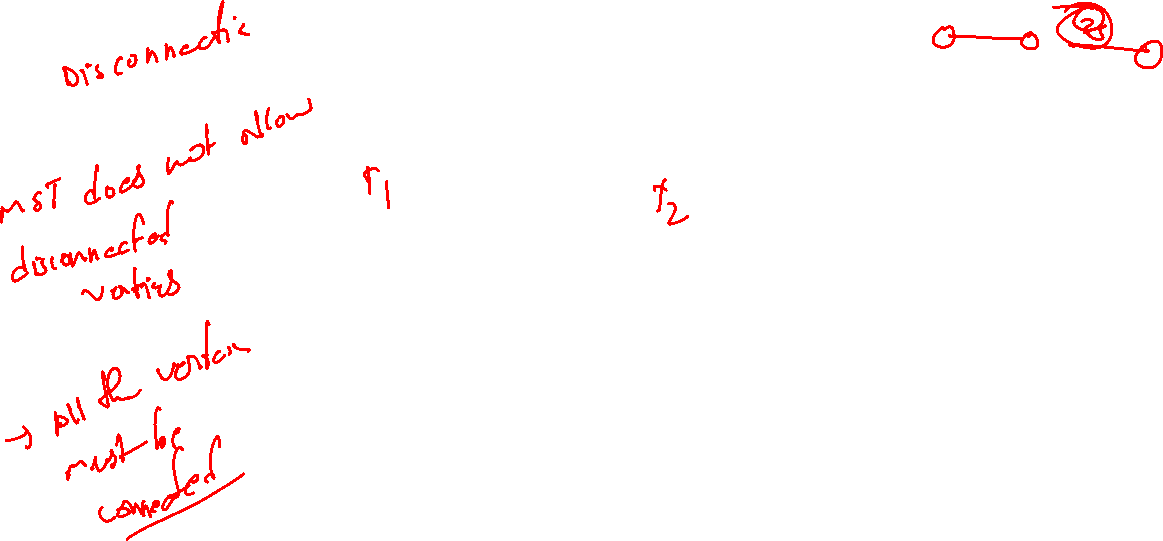 Disconnectic
MST does not allow
disconnected
vatics
r1
r2
→ All the vertex
must be
connected